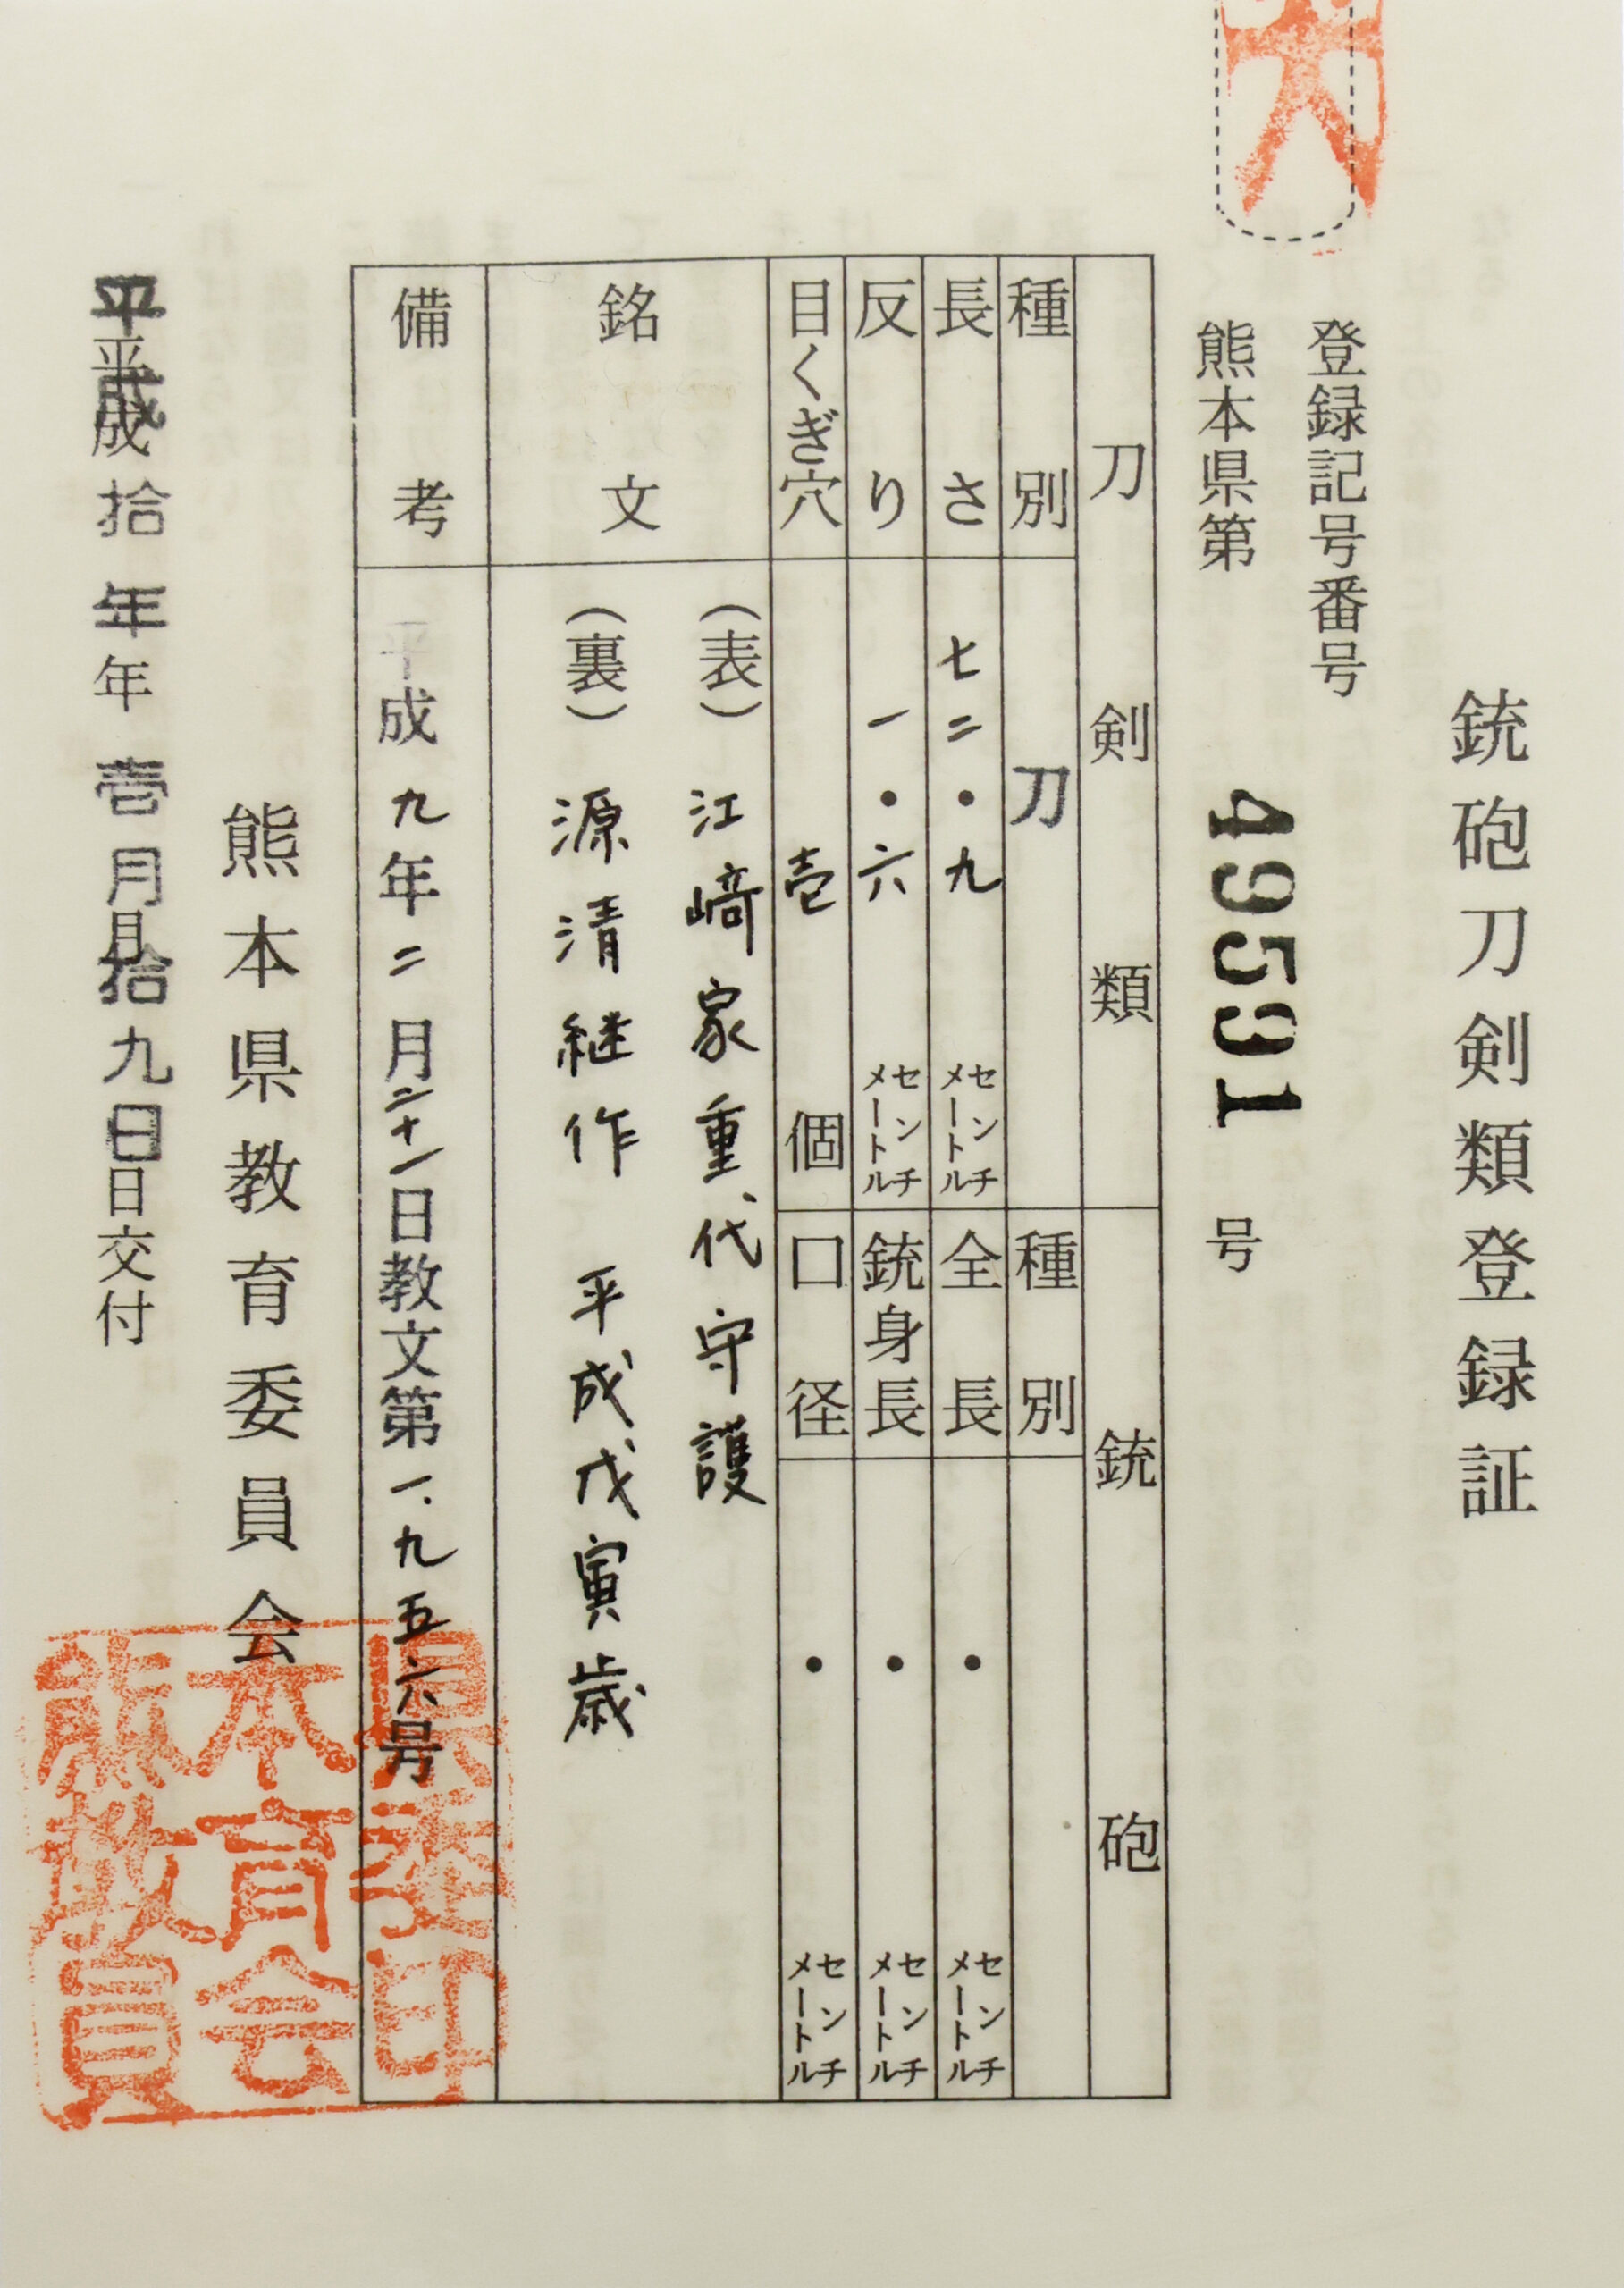 銃砲刀剣類登録証
登録記号番号
熊本県第 49591 号
刀剣類
銃砲
種別 刀
種別
長さ 七二・九 センチメートル
全長 ・ センチメートル
反り 一・六 センチメートル
銃身長 ・ センチメートル
目くぎ穴 壱 個
口径 ・ センチメートル
銘文
(表) 江﨑家重代守護
(裏) 源清継作 平成戊寅歳
備考
平成九年二月二十一日教文第一、九五六号
熊本県教育委員会
平成平成拾年年壱月月拾九日日交付
熊本県教育委員会印